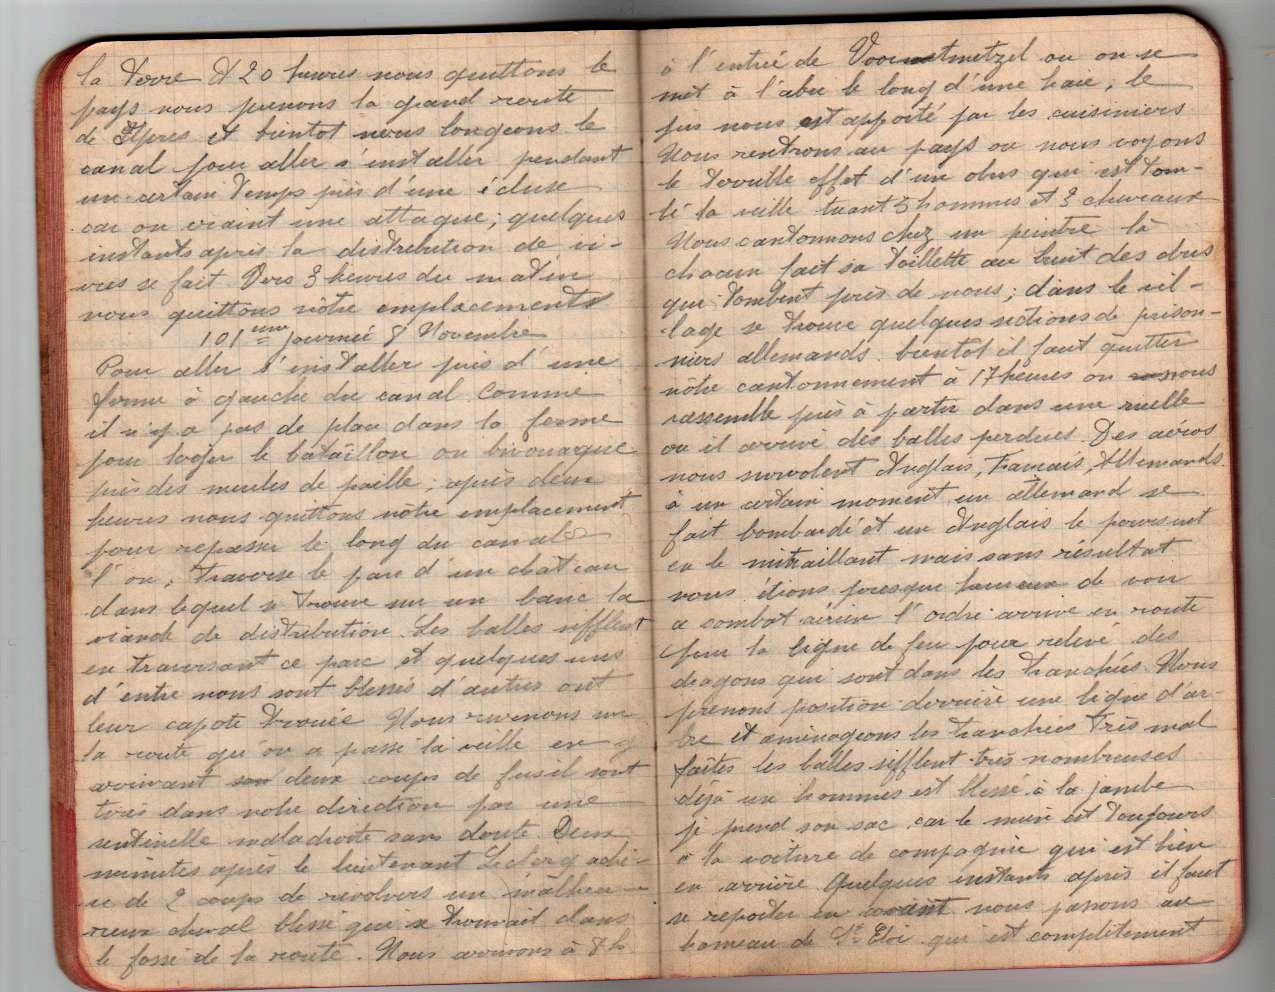 la Terre A 20 heures nous quittons le
pays nous prenons la grand route
de Ypres et bientot nous longeons le
canal pour aller s'installer pendant
un certain temps près d'une écluse
car on craint une attaque ; quelques
instants après la distribution de vi-
vres se fait Vers 3 heures du matin
nous quittons nôtre emplacement
101eme journée 8 Novembre
Pour aller s'installer près d'une
ferme à gauche du canal. Comme
il n'y a pas de place dans la ferme
pour loger le bataillon on bivouaque
près des meules de paille ; après deux
heures nous quittons nôtre emplacement
pour repasser le long du canal
l'on, traverse le parc d'un château
dans lequel se trouve sur un banc la
viande de distribution. Les balles sifflent
en traversant ce parc et quelques uns
d'entre nous sont blessés d'autres ont
leur capote trouée Nous revenons sur
la route qu'on a passé la veille en
arrivant deux coups de fusil sont
tirés dans notre direction par une
sentinelle maladroite sans doute. Deux
minutes après le lieutenant Leclercq achè-
ve de 2 coups de revolvers un malheu-
reux cheval blessé qui se trouvait dans
le fossé de la route. Nous arrivons à 8 h
à l'entrée de Voormetzel ou on se
met à l'abri le long d'une haie, le
jus nous est apporté par les cuisiniers
Nous rentrons au pays ou nous voyons
le terrible effet d'un obus qui est tom-
bé la veille tuant 5 hommes et 3 chevaux
Nous cantonnons chez un peintre là
chacun fait sa toillette au bruit des obus
qui tombent près de nous ; dans le vil-
lage se trouve quelques sections de prison-
niers allemands. bientot il faut quitter
nôtre cantonnement à 17 heures on nous
rassemble près à partir dans une ruelle
ou il arrive des balles perdues. Des aéros
nous survolent Anglais, Français, Allemands.
à un certain moment un allemand se
fait bombardé et un Anglais le poursuit
en le mitraillant mais sans résultat
nous étions presque heureux de voir
ce combat aérien l'ordre arrive en route
pour la ligne de feu pour relevé des
dragons qui sont dans les tranchées. Nous
prenons position derrière une ligne d'ar-
bre et aménageons les tranchées très mal
faites les balles sifflent très nombreuses
déjà un hommes est blessé à la jambe
je prend son sac car le mien est toujours
à la voiture de compagnie qui est bien
en arrière Quelques instants après il faut
se reporter en avant nous passons au
hameau de St Eloi qui est complètement